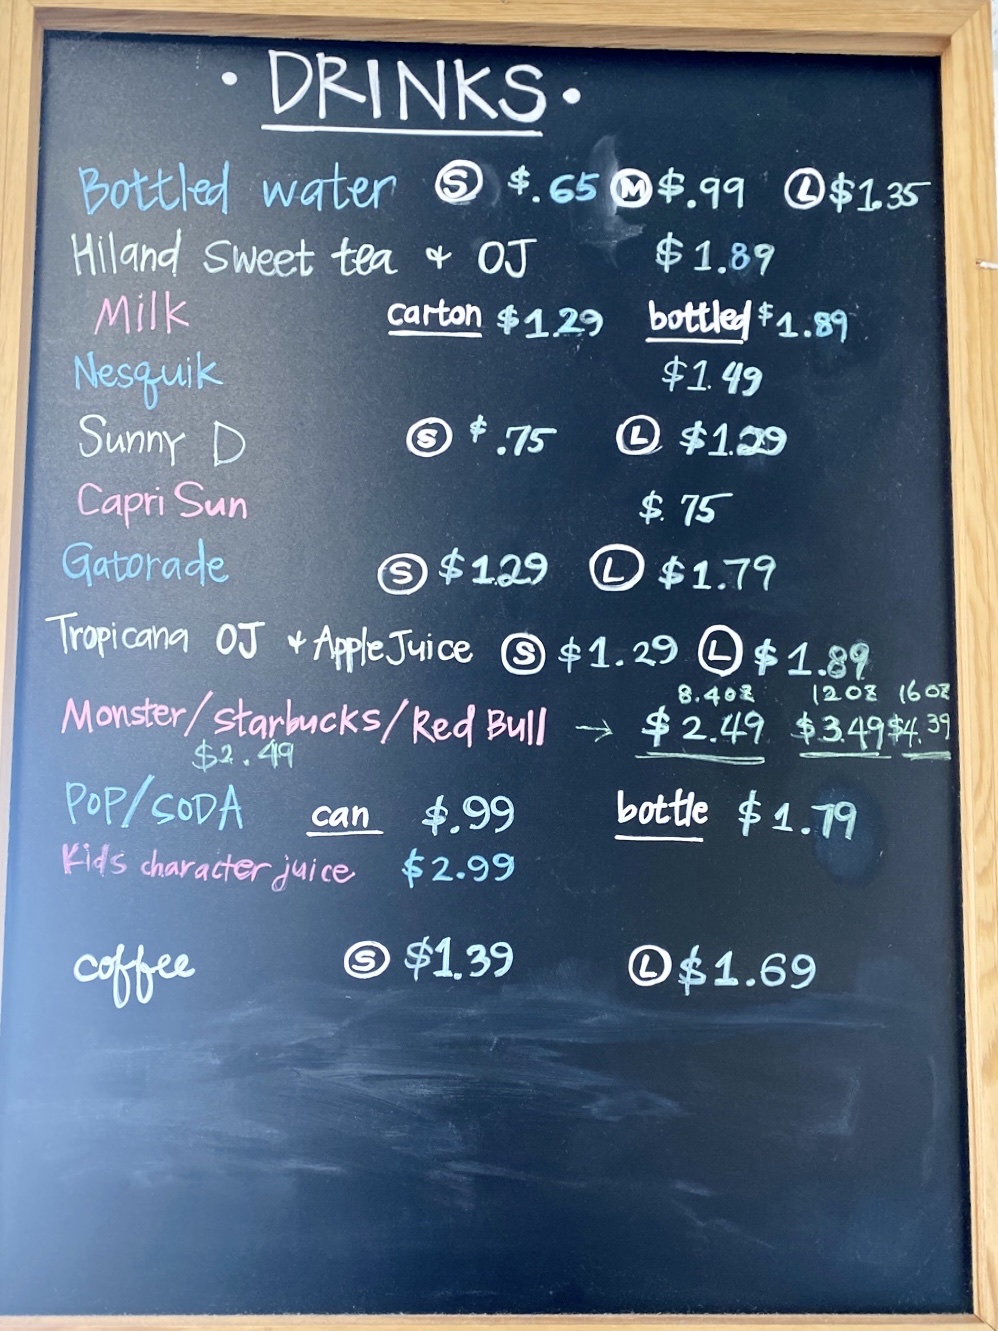 • DRINKS •
Bottled water Ⓢ $.65 Ⓜ $.99 Ⓛ $1.35
Hiland sweet tea & OJ $1.89
Milk carton $1.29 bottled $1.89
Nesquik $1.49
Sunny D Ⓢ $.75 Ⓛ $1.29
Capri Sun $.75
Gatorade Ⓢ $1.29 Ⓛ $1.79
Tropicana OJ & Apple Juice Ⓢ $1.29 Ⓛ $1.89
8.40z 120z 160z
Monster/Starbucks/Red Bull → $2.49 $3.49 $4.39
$2.49
POP/SODA can $.99 bottle $1.79
Kids character juice $2.99
coffee Ⓢ $1.39 Ⓛ $1.69